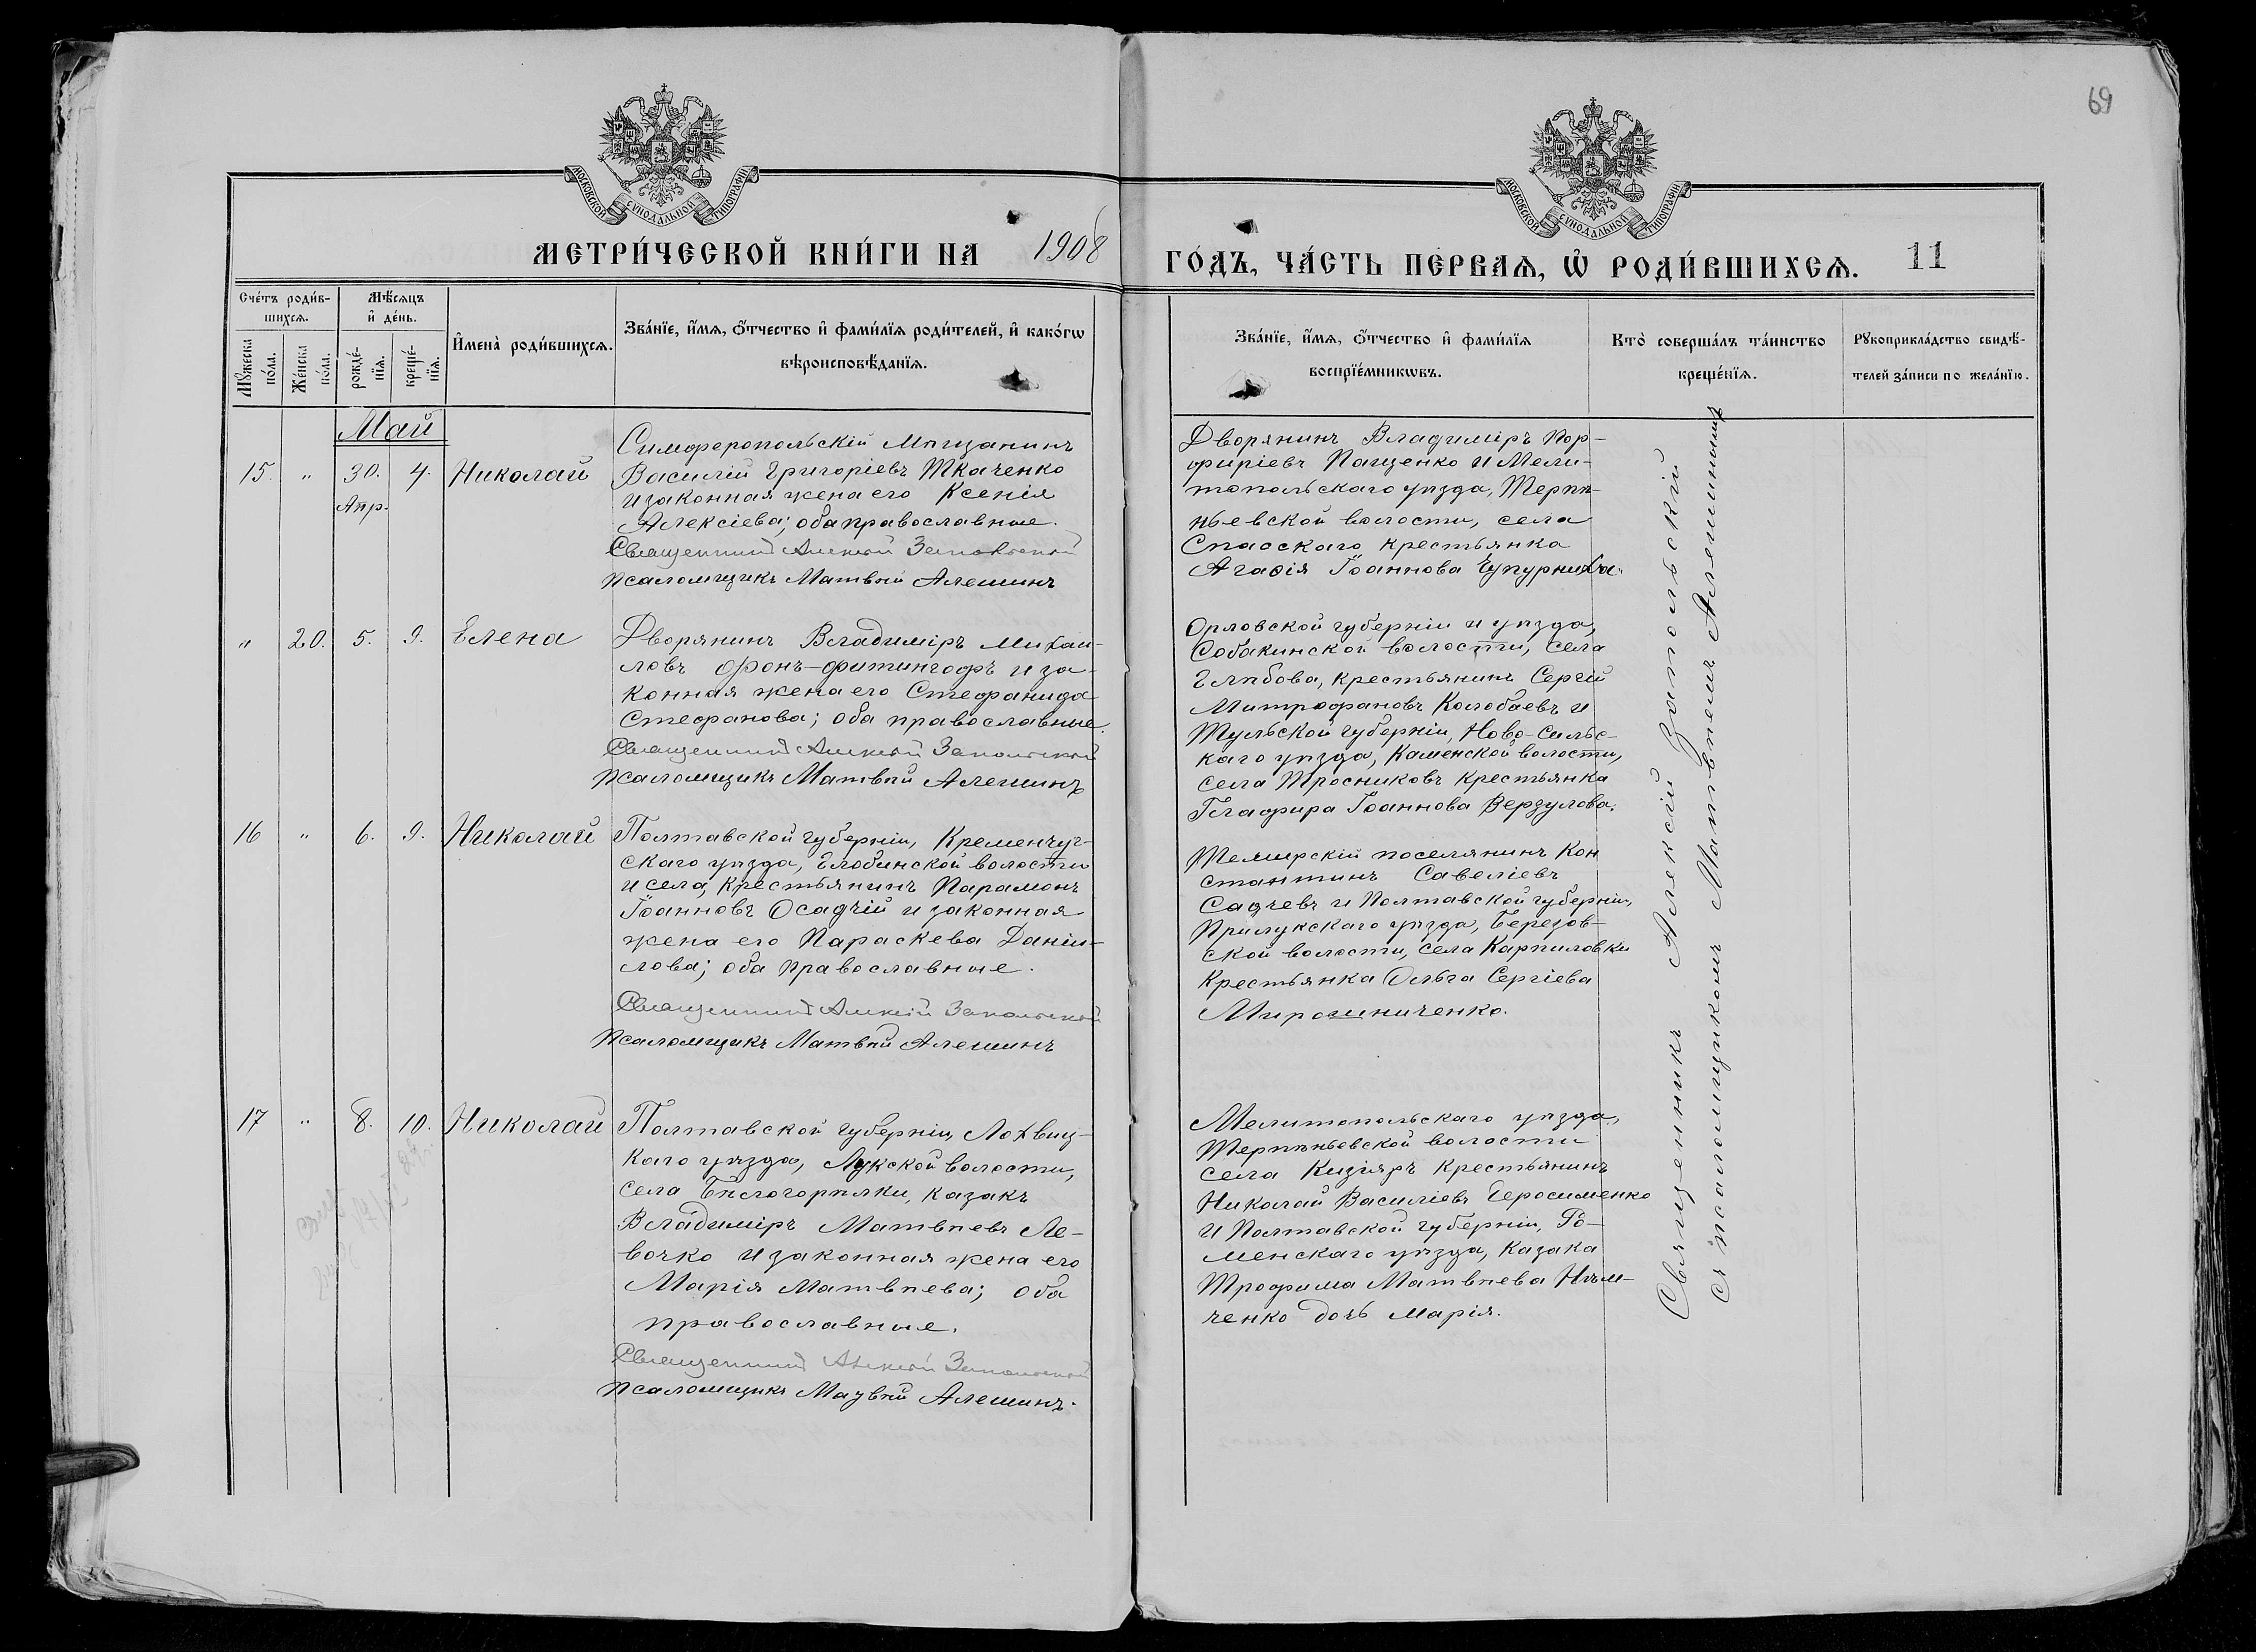 69
МОСКОВСКОЙ СѴНОДАЛЬНОЙ ТИПОГРАФІИ
МОСКОВСКОЙ СѴНОДАЛЬНОЙ ТИПОГРАФІИ
МЕТРИ́ЧЕСКОЙ КНИ́ГИ НА 1908
ГО́ДЪ, ЧА́СТЬ ПЕ́РВАѦ, Ѡ҆ РОДИ́ВШИХСѦ. 11
Сче́тъ роди́в-
шихсѧ.
Мꙋ́жеска по́ла.
Же́нска по́ла.
Мѣ́сѧцъ
и҆ де́нь.
рожде́-
нїѧ.
креще́-
нїѧ.
И҆мена̀ роди́вшихсѧ.
Зва́нїе, и҆́мѧ, ѻ҆́тчество и҆ фами́лїѧ роди́телей, и҆ како́гѡ
вѣроисповѣ́данїѧ.
Зва́нїе, и҆́мѧ, ѻ҆́тчество и҆ фами́лїѧ
воспрїе́мникѡвъ.
Кто̀ соверша́лъ та́инство
креще́нїѧ.
Рꙋкоприкла́дство свидѣ́-
телей за́писи по жела́нїю.
Май
15. " 30. 4. Николай
Апр.
Симферопольскій Мѣщанинъ
Василій Григоріевъ Ткаченко
и законная жена его Ксенія
Алексіева; оба православные.
Священникъ Алексій Запольскій
Псаломщикъ Матвѣй Алешинъ
Дворянинъ Владиміръ Пор-
фиріевъ Пащенко и Мели-
топольскаго уѣзда, Терпѣ-
ньевской волости, села
Спасскаго крестьянка
Агафія Іоаннова Чупурниха.
" 20. 5. 9. Елена
Дворянинъ Владиміръ Михаи-
ловъ фонъ-фитингофъ и за-
конная жена его Стефанида
Стефанова; оба православные.
Священникъ Алексій Запольскій
Псаломщикъ Матвѣй Алешинъ
Орловской губерніи и уѣзда,
Собакинской волости, села
Глѣбова, крестьянинъ Сергій
Митрофановъ Колобаевъ и
Тульской губерніи, Ново-Сильс-
каго уѣзда, Каменской волости,
села Тросниковъ крестьянка
Глафира Іоаннова Верзулова.
16 " 6. 9. Николай
Полтавской губерніи, Кременчуг-
скаго уѣзда, Глобинской волости
и села, крестьянинъ Парамонъ
Іоанновъ Осадчій и законная
жена его Параскева Даніи-
лова; оба православные.
Священникъ Алексій Запольскій
Псаломщикъ Матвѣй Алешинъ
поселянинъ Кон
стантинъ Савеліевъ
Садчевъ и Полтавской губерніи,
Прилукскаго уѣзда, Березов-
ской волости, села Карпиловки
крестьянка Ольга Сергіева
Мирошниченко.
17 " 8. 10. Николай
Полтавской губерніи, Лохвиц-
каго уѣзда, Лукской волости,
села Бѣлогорилки, казакъ
Владиміръ Матвѣевъ Ле-
вочко и законная жена его
Марія Матвѣева; оба
православные.
Священникъ Алексій Запольскій
Псаломщикъ Матвѣй Алешинъ.
Мелитопольскаго уѣзда,
Терпѣньевской волости
села Кизіяръ крестьянинъ
Николай Василіевъ Геросименко
и Полтавской губерніи, Ро-
менскаго уѣзда, казака
Трофима Матвѣева Нѣм-
ченко дочь Марія.
Священникъ Алексій Запольскій
съ псаломщикомъ Матвѣемъ Алешинымъ